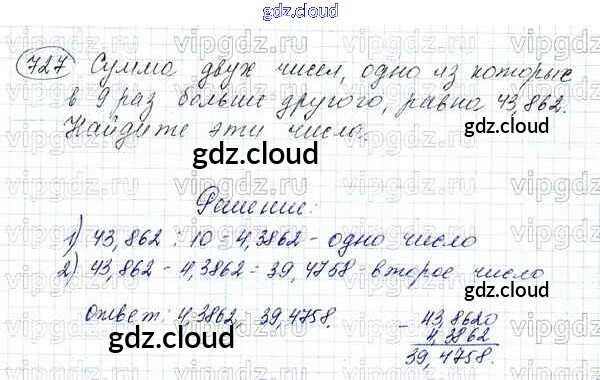 gdz.cloud
727 Сумма двух чисел, одно из которых
в 9 раз больше другого, равна 43,862.
Найдите эти числа.
gdz.cloud
Решение:
1) 43,862 : 10 = 4,3862 - одно число
2) 43,862 - 4,3862 = 39,4758 - второе число
Ответ: 4,3862, 39,4758.
- 43,8620
4,3862
39,4758.
gdz.cloud
gdz.cloud
gdz.cloud